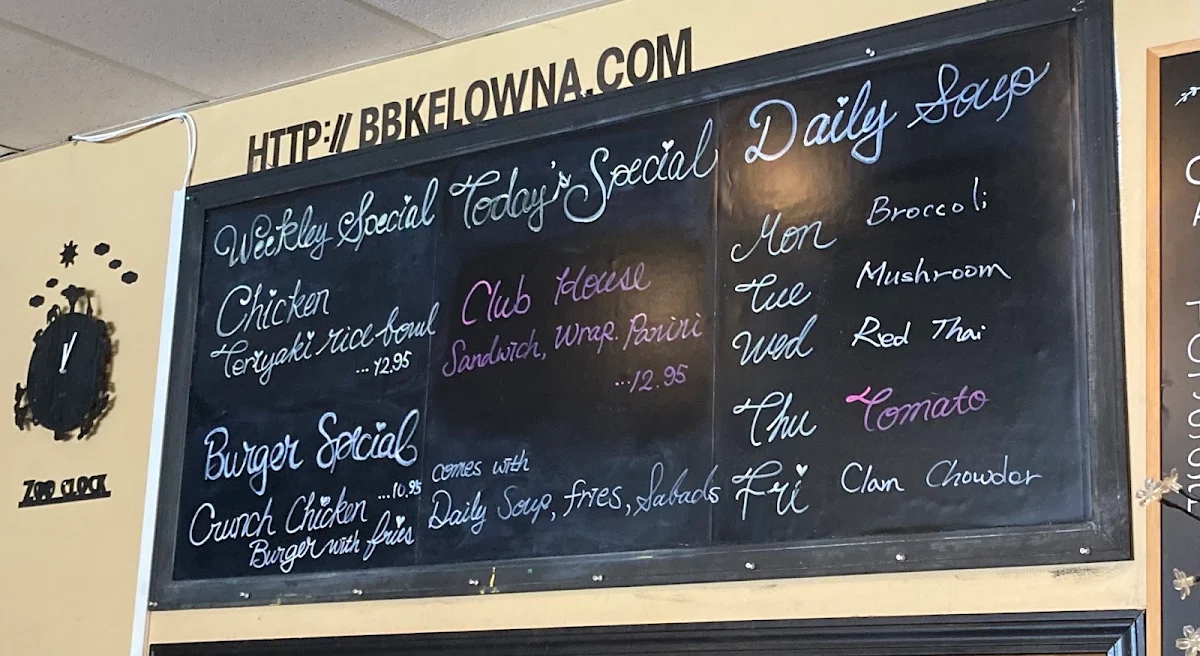 HTTP:// BBKELOWNA.COM
Weekley Special
Chicken
Teriyaki rice bowl
...12.95
Burger Special
...10.95
Crunch Chicken
Burger with fries
Today's Special
Club House
Sandwich, Wrap. Panini
...12.95
comes with
Daily Soup, fries, Salads
Daily Soup
Mon Broccoli
Tue Mushroom
Wed Red Thai
Thu Tomato
Fri Clam Chowder
ZOO CLOCK